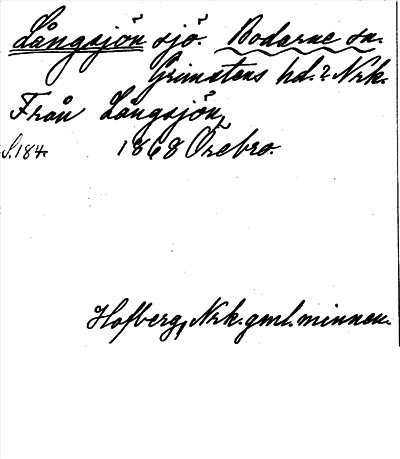 Långsjön sjö. Bodarne sn.
Grimstens hd. Nrk.
Från Långsjön,
S.184. 1868 Örebro.
Hofberg, Nrk. gml. minnen.